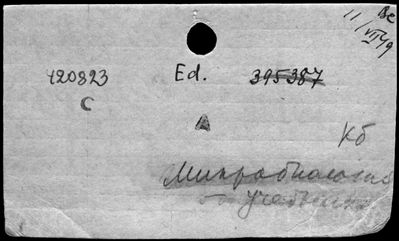 Вс
11/VII 49
420823 Ed. 395387
С
А
Кб
Микробиология